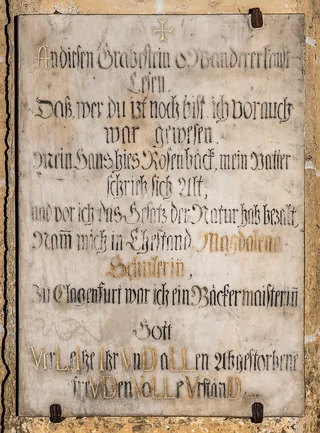 An diesen Grabstein O Wanderer kanst
Lesen
Daß, wer du izt noch bist, ich vor auch
war gewesen
Mein Hans hies Rosenbäck, mein Vatter
schrieb sich Alt,
und vor ich das Gesatz der Natur hab bezalt,
Nam̄ mich in Ehestand Magdalena
Schulerin,
Zu Clagenfurt war ich ein Bäckermaisterin̄
Gott
VerLeIhe Ihr VnD aLLen Abgestorbene
freVDenVoLLe VrstanD